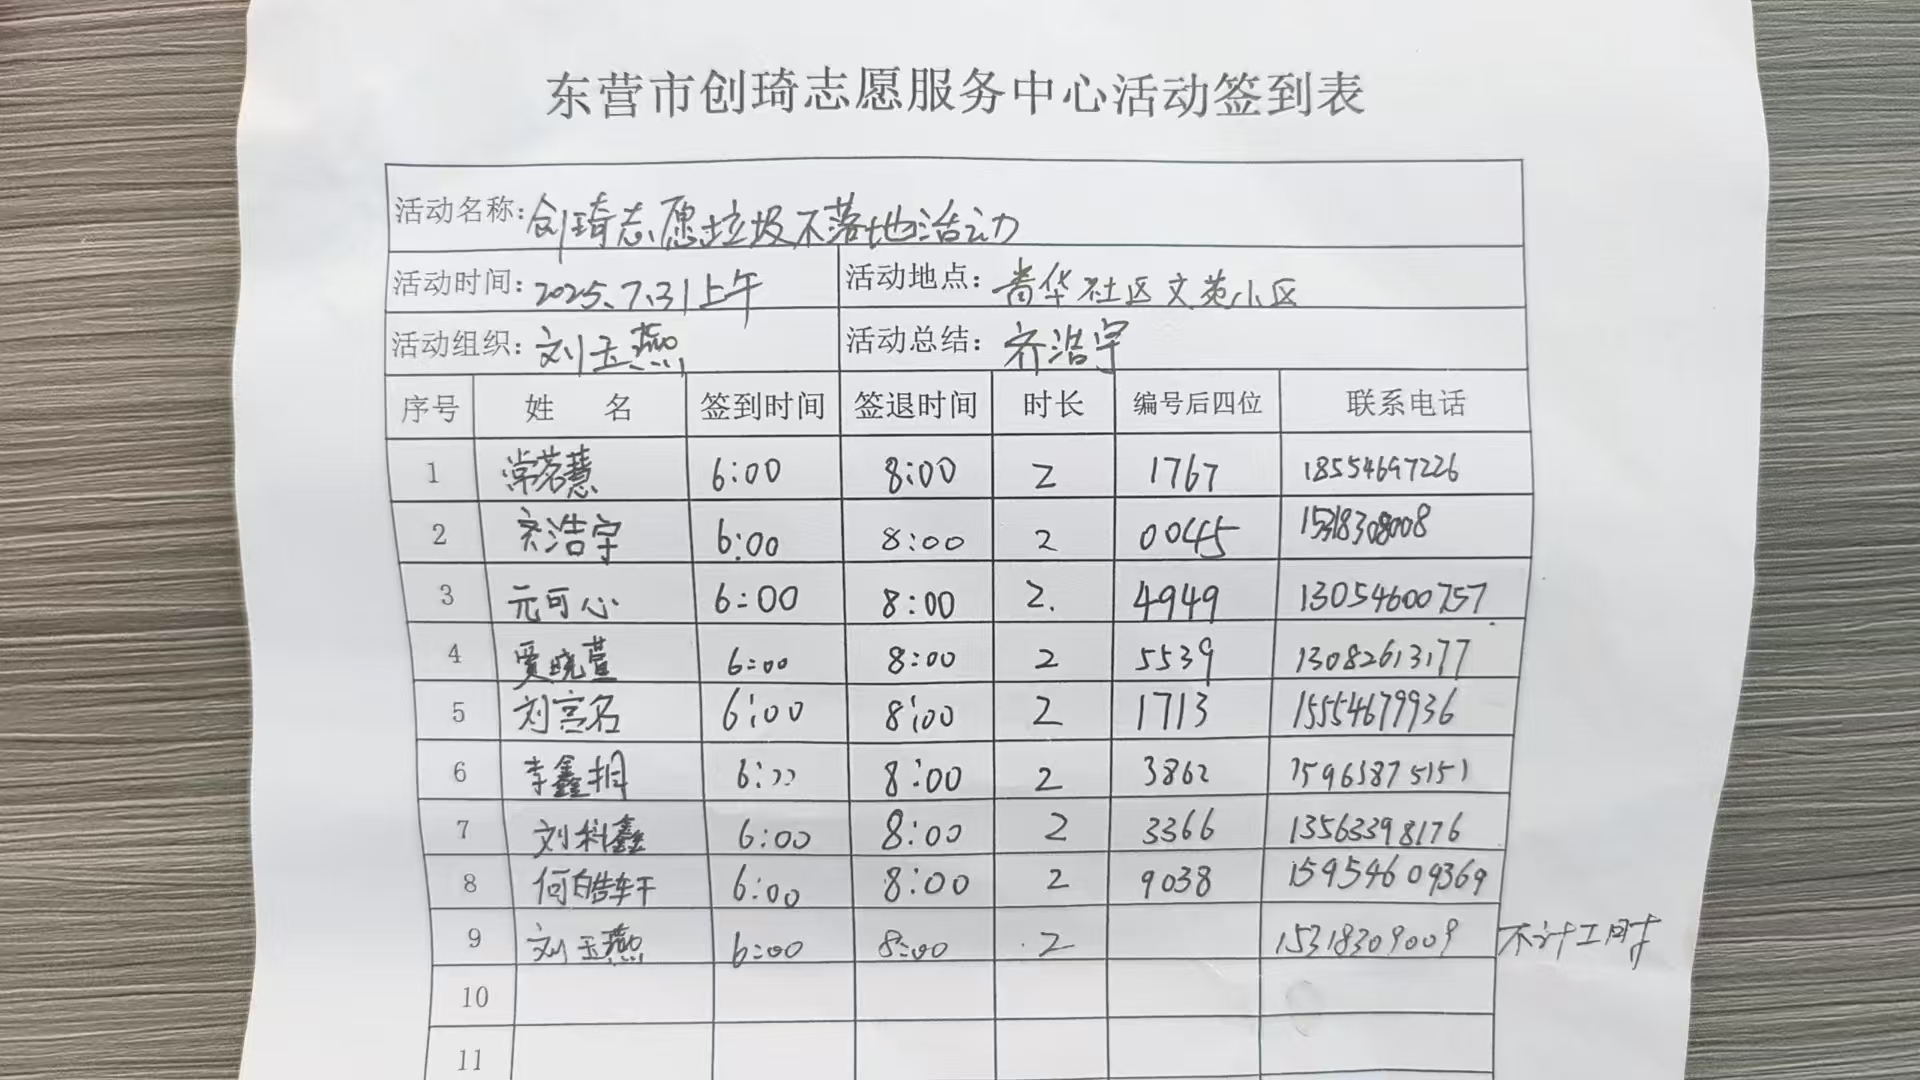 东营市创琦志愿服务中心活动签到表
活动名称:创琦志愿垃圾不落地活动
活动时间:2025.7.31上午 活动地点:青华社区文苑小区
活动组织:刘玉燕 活动总结:齐浩宇
序号 姓 名 签到时间 签退时间 时长 编号后四位 联系电话
1 常若慧 6:00 8:00 2 1767 18554697226
2 齐浩宇 6:00 8:00 2 0045 15318308008
3 元可心 6:00 8:00 2. 4949 13054600757
4 贾晓萱 6:00 8:00 2 5539 13082613177
5 刘宫名 6:00 8:00 2 1713 15554679936
6 李鑫桐 6:00 8:00 2 3862 15963875151
7 刘科鑫 6:00 8:00 2 3366 13563398176
8 何皓轩 6:00 8:00 2 9038 15954609369
9 刘玉燕 6:00 8:00 2 15318309009 不计工时
10
11